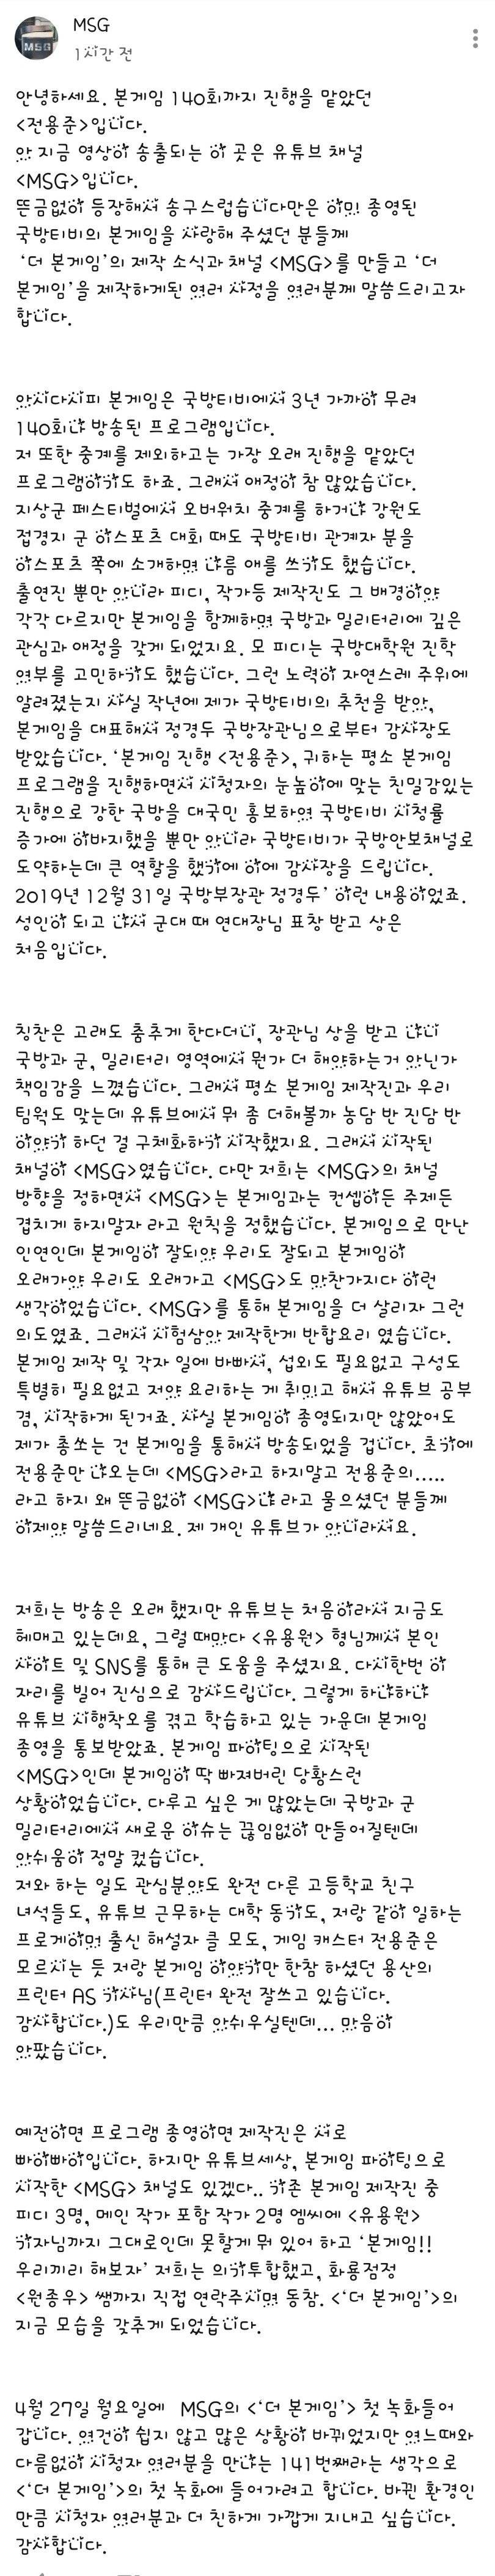 MSG
MSG
1시간 전
안녕하세요. 본게임 140회까지 진행을 맡았던
<전용준>입니다.
아 지금 영상이 송출되는 이 곳은 유튜브 채널
<MSG>입니다.
뜬금없이 등장해서 송구스럽습니다만은 이미 종영된
국방티비의 본게임을 사랑해 주셨던 분들께
‘더 본게임’의 제작 소식과 채널 <MSG>를 만들고 ‘더
본게임’을 제작하게된 여러 사정을 여러분께 말씀드리고자
합니다.
아시다시피 본게임은 국방티비에서 3년 가까이 무려
140회나 방송된 프로그램입니다.
저 또한 중계를 제외하고는 가장 오래 진행을 맡았던
프로그램이기도 하죠. 그래서 애정이 참 많았습니다.
지상군 페스티벌에서 오버워치 중계를 하거나 강원도
접경지 군 이스포츠 대회 때도 국방티비 관계자 분을
이스포츠 쪽에 소개하며 나름 애를 쓰기도 했습니다.
출연진 뿐만 아니라 피디, 작가등 제작진도 그 배경이야
각각 다르지만 본게임을 함께하며 국방과 밀리터리에 깊은
관심과 애정을 갖게 되었지요. 모 피디는 국방대학원 진학
여부를 고민하기도 했습니다. 그런 노력이 자연스레 주위에
알려졌는지 사실 작년에 제가 국방티비의 추천을 받아,
본게임을 대표해서 정경두 국방장관님으로부터 감사장도
받았습니다. ‘본게임 진행 <전용준>, 귀하는 평소 본게임
프로그램을 진행하면서 시청자의 눈높이에 맞는 친밀감있는
진행으로 강한 국방을 대국민 홍보하여 국방티비 시청률
증가에 이바지했을 뿐만 아니라 국방티비가 국방안보채널로
도약하는데 큰 역할을 했기에 이에 감사장을 드립니다.
2019년 12월 31일 국방부장관 정경두’ 이런 내용이었죠.
성인이 되고 나서 군대 때 연대장님 표창 받고 상은
처음입니다.
칭찬은 고래도 춤추게 한다더니, 장관님 상을 받고 나니
국방과 군, 밀리터리 영역에서 뭔가 더 해야하는거 아닌가
책임감을 느꼈습니다. 그래서 평소 본게임 제작진과 우리
팀워도 맞는데 유튜브에서 뭐 좀 더해볼까 농담 반 진담 반
이야기 하던 걸 구체화하기 시작했지요. 그래서 시작된
채널이 <MSG>였습니다. 다만 저희는 <MSG>의 채널
방향을 정하면서 <MSG>는 본게임과는 컨셉이든 주제든
겹치게 하지말자 라고 원칙을 정했습니다. 본게임으로 만난
인연인데 본게임이 잘되야 우리도 잘되고 본게임이
오래가야 우리도 오래가고 <MSG>도 마찬가지다 이런
생각이었습니다. <MSG>를 통해 본게임을 더 살리자 그런
의도였죠. 그래서 시험삼아 제작한게 반합요리 였습니다.
본게임 제작 및 각자 일에 바빠서, 섭외도 필요없고 구성도
특별히 필요없고 저야 요리하는 게 취미고 해서 유튜브 공부
겸, 시작하게 된거죠. 사실 본게임이 종영되지만 않았어도
제가 총쏘는 건 본게임을 통해서 방송되었을 겁니다. 초기에
전용준만 나오는데 <MSG>라고 하지말고 전용준의.....
라고 하지 왜 뜬금없이 <MSG>냐 라고 물으셨던 분들께
이제야 말씀드리네요. 제 개인 유튜브가 아니라서요.
저희는 방송은 오래 했지만 유튜브는 처음이라서 지금도
헤매고 있는데요, 그럴 때마다 <유용원> 형님께서 본인
사이트 및 SNS를 통해 큰 도움을 주셨지요. 다시한번 이
자리를 빌어 진심으로 감사드립니다. 그렇게 하나하나
유튜브 시행착오를 겪고 학습하고 있는 가운데 본게임
종영을 통보받았죠. 본게임 파이팅으로 시작된
<MSG>인데 본게임이 딱 빠져버린 당황스런
상황이었습니다. 다루고 싶은 게 많았는데 국방과 군
밀리터리에서 새로운 이슈는 끊임없이 만들어질텐데
아쉬움이 정말 컸습니다.
저와 하는 일도 관심분야도 완전 다른 고등학교 친구
녀석들도, 유튜브 근무하는 대학 동기도, 저랑 같이 일하는
프로게이머 출신 해설자 클 모도, 게임 캐스터 전용준은
모르시는 듯 저랑 본게임 이야기만 한참 하셨던 용산의
프린터 AS 기사님(프린터 완전 잘쓰고 있습니다.
감사합니다.)도 우리만큼 아쉬우실텐데... 마음이
아팠습니다.
예전이면 프로그램 종영이면 제작진은 서로
빠이빠이입니다. 하지만 유튜브세상, 본게임 파이팅으로
시작한 <MSG> 채널도 있겠다.. 기존 본게임 제작진 중
피디 3명, 메인 작가 포함 작가 2명 엠씨에 <유용원>
기자님까지 그대로인데 못할게 뭐 있어 하고 ‘본게임!!
우리끼리 해보자’ 저희는 의기투합했고, 화룡점정
<원종우> 쌤까지 직접 연락주시며 동참. <‘더 본게임’>의
지금 모습을 갖추게 되었습니다.
4월 27일 월요일에 MSG의 <‘더 본게임’> 첫 녹화들어
갑니다. 여건이 쉽지 않고 많은 상황이 바뀌었지만 여느때와
다름없이 시청자 여러분을 만나는 141번째라는 생각으로
<‘더 본게임’>의 첫 녹화에 들어가려고 합니다. 바뀐 환경인
만큼 시청자 여러분과 더 친하게 가깝게 지내고 싶습니다.
감사합니다.